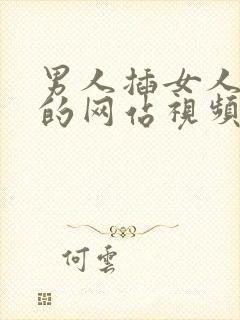 男人插女人
的网佔視頻
何雲